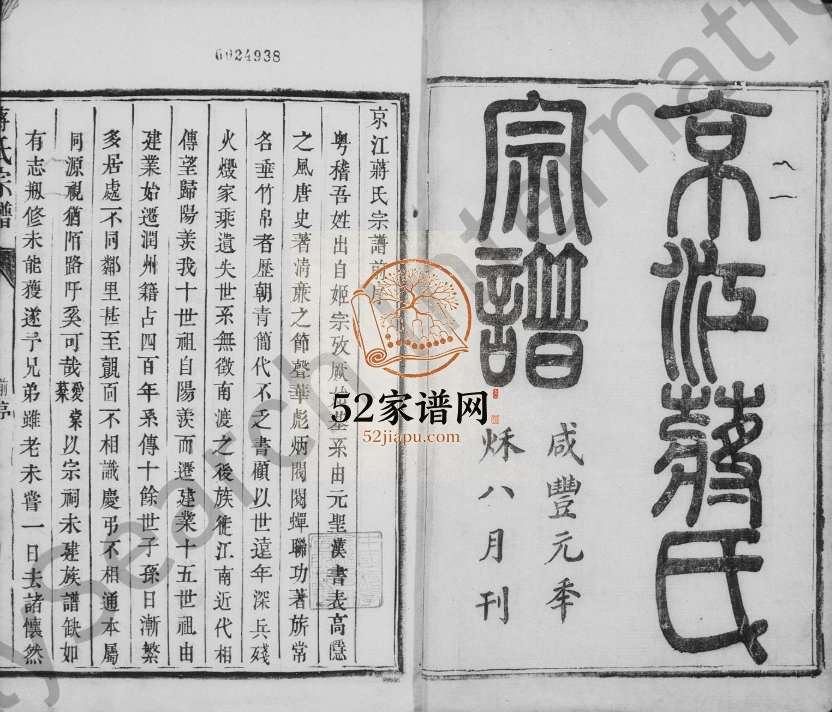 京江蔣氏
宗譜
咸豐元年
秌八月刊
6024938
京江蔣氏宗譜前序
粵稽吾姓出自姬宗攷厥始基系由元聖漢書表高隱
之風唐史著清亷之節聲華彪炳閥閱蟬聯功著旂常
名垂竹帛者歷朝青簡代不乏書顧以世遠年深兵殘
火燬家乘遺失世系無徵南渡之後族徙江南近代相
傳望歸陽羨我十世祖自陽羨而遷建業十五世祖由
建業始遷潤州籍占四百年系傳十餘世子孫日漸繁
多居處不同鄰里甚至覿面不相識慶弔不相通本屬
同源視猶陌路吁奚可哉愛棠蓁以宗祠未建族譜缺如
有志搬修未能獲遂予兄弟雖老未嘗一日去諸懷然
蔣氏宗譜
前序
52家谱网
52jiapu.com